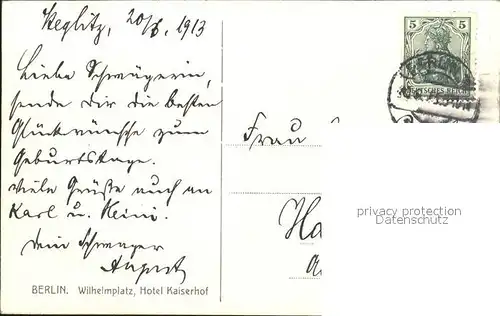 Steglitz, 20/6. 1913
Liebe Schwägerin,
sende dir die besten
Glückwünsche zum
Geburtstage.
Viele Grüße auch an
Karl u. Heini.
Dein Schwager
August
BERLIN. Wilhelmplatz, Hotel Kaiserhof
5 5
DEUTSCHES REICH
BERLIN
Frau
Ha
privacy protection
Datenschutz